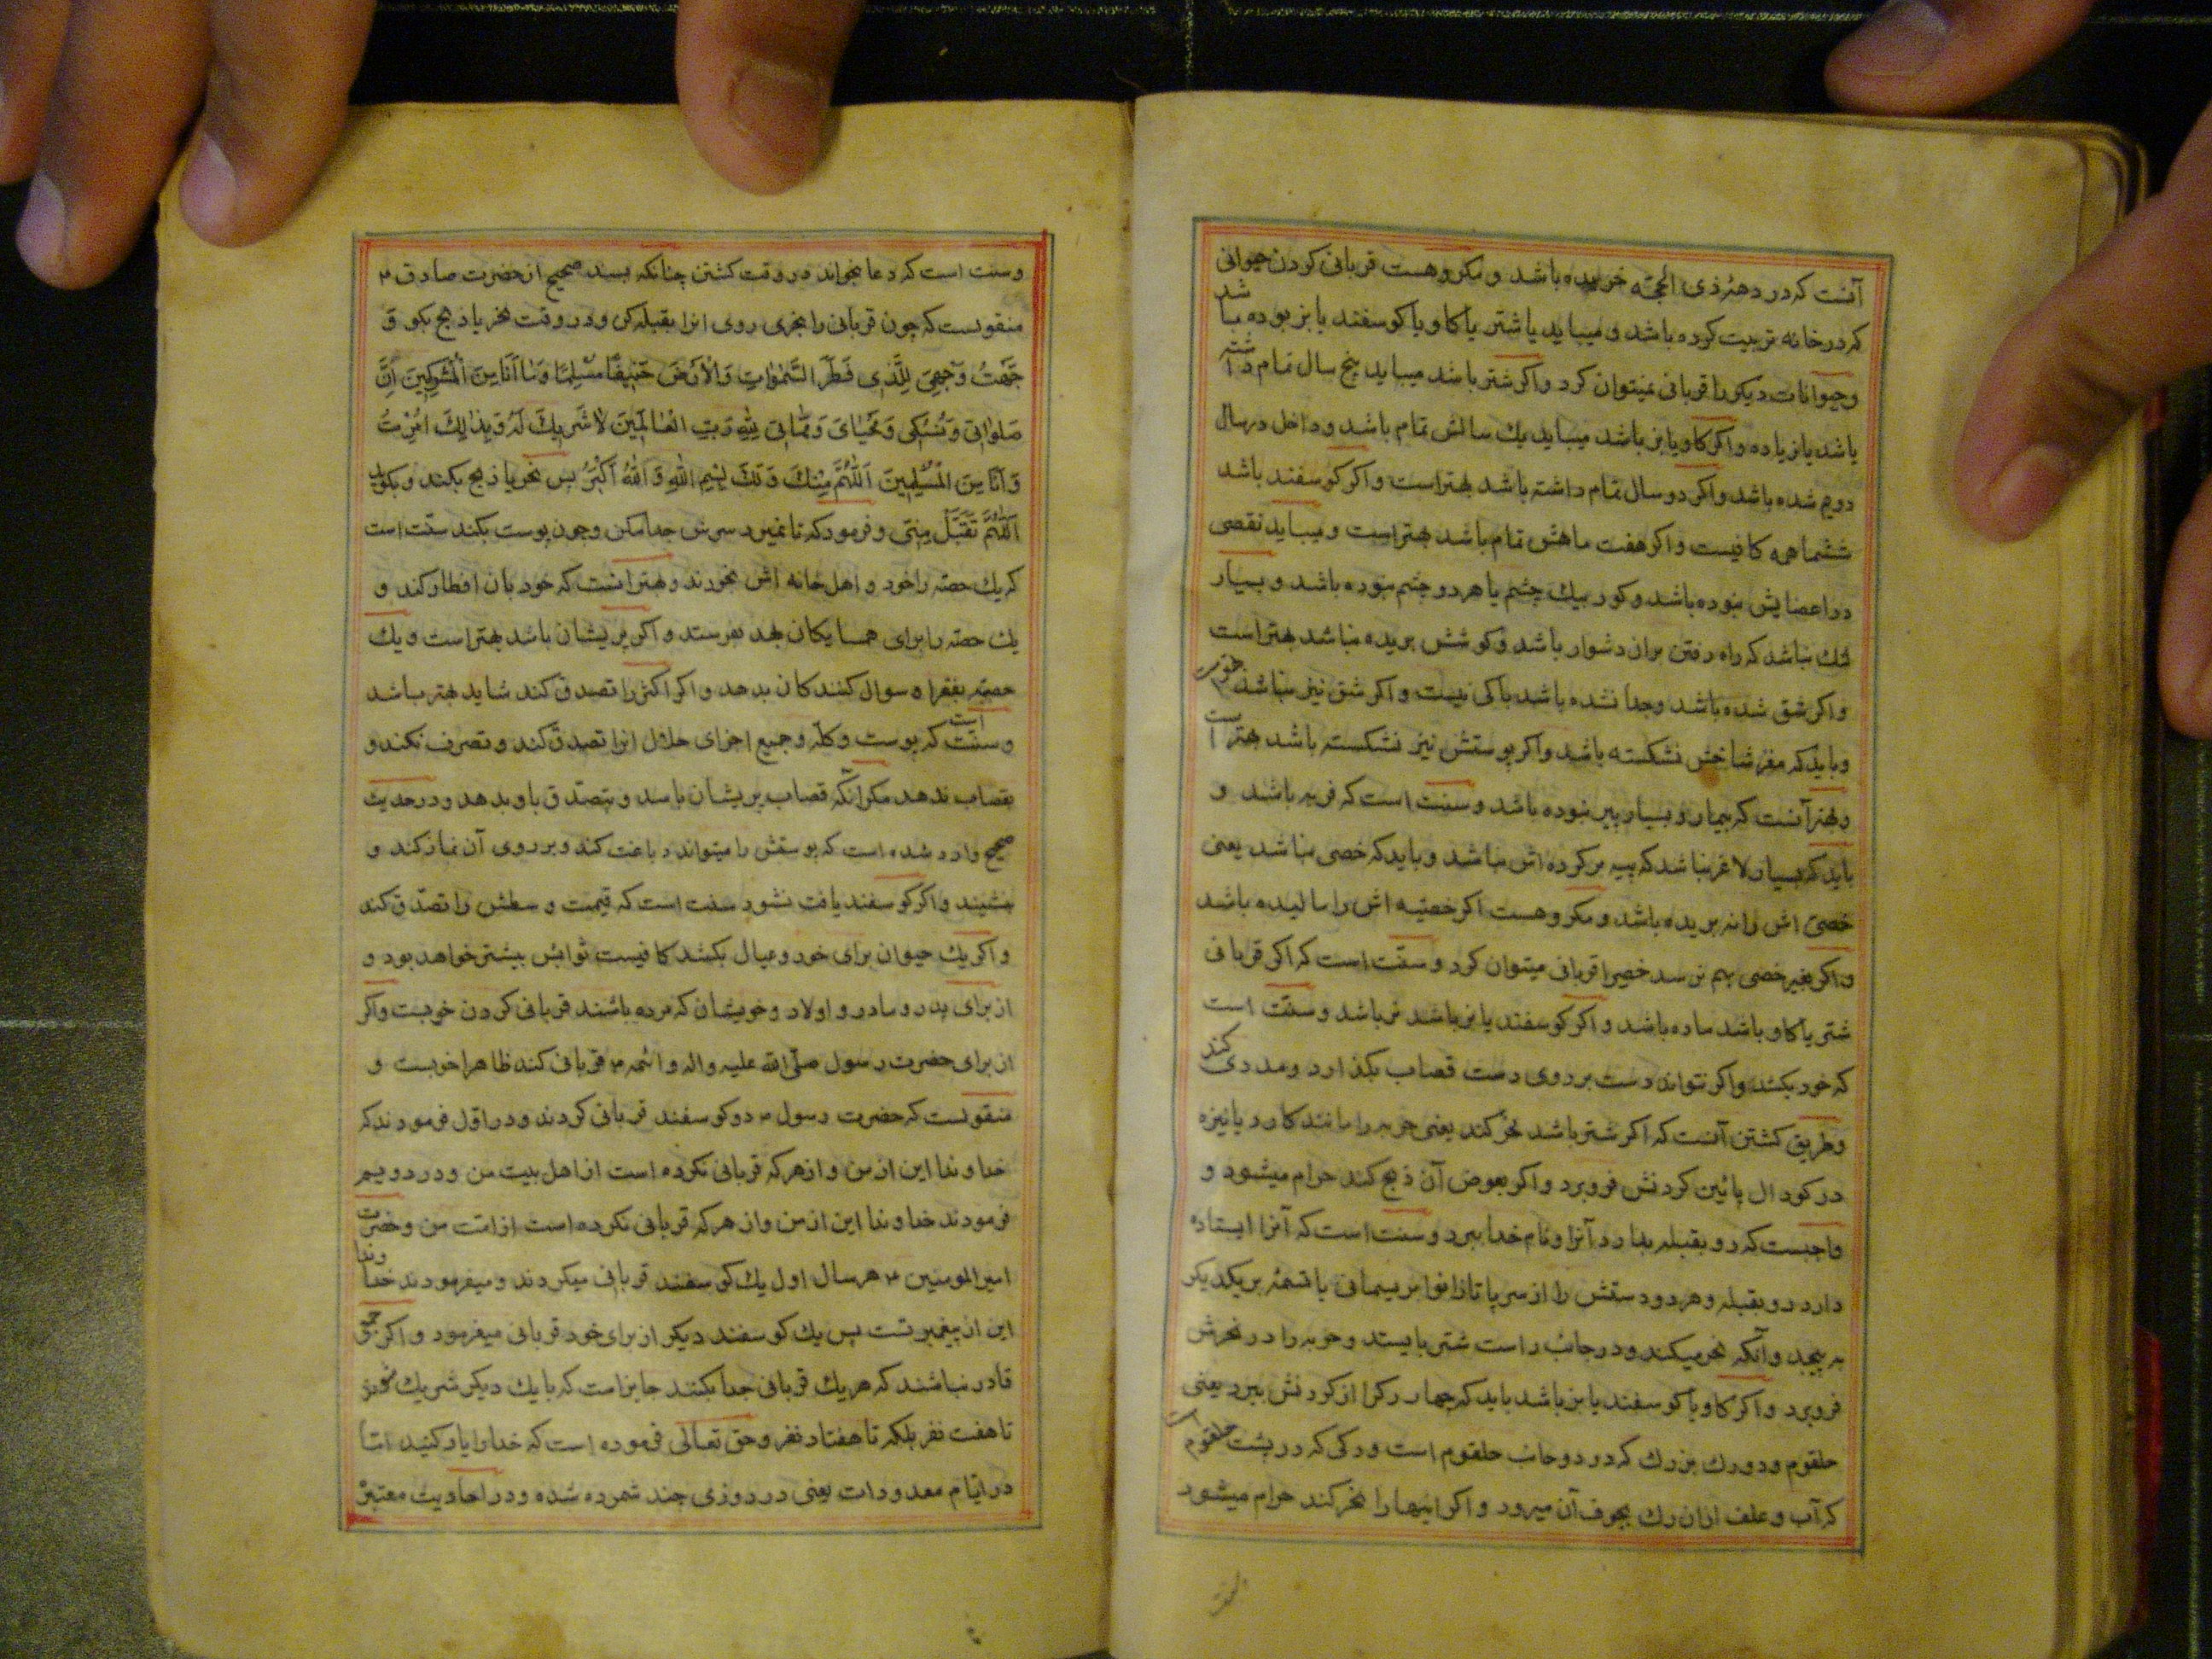 آنست که در دهۀ ذی الحجّه خریده باشد و مکروهست قربانی کردن حیوانی
که در خانه تربیت کرده باشد و میباید یا شتر یا کاو یا کوسفند یا بز بوده باشد
و حیوانات دیکر را قربانی نمیتوان کرد و اکر شتر باشد میباید پنج سال تمام داشته
باشد یا زیاده و اکر کاو یا بز باشد میباید یك سالش تمام باشد و داخل در سال
دویم شده باشد و اکر دو سال تمام داشته باشد بهتر است و اکر کوسفند باشد
ششماهه کافیست و اکر هفت ماهش تمام باشد بهتر است و میباید نقصی
در اعضایش نبوده باشد و کور بیك چشم یا هر دو چشم نبوده باشد و بسیار
لنك نباشد که راه رفتن بران دشوار باشد و کوشش بریده نباشد بهتر است
و اکر شق شده باشد و جدا نشده باشد باکی نیست و اکر شق نیز نباشد خوبست
و باید که مغز شاخش نشکسته باشد و اکر پوستش نیز نشکسته باشد بهتر است
و بهتر آنست که بیمار و بسیار پیر نبوده باشد و سنت است که فربه باشد و
باید که بسیار لاغر نباشد که پیه بر کرده اش نباشد و باید که خصی نباشد یعنی
خصیۀ اش را نه بریده باشد و مکروهست اکر خصیه اش را مالیده باشد
و اکر بغیر خصی بهم نرسد خصیرا قربانی میتوان کرد و سنّت است که اکر قربانی
شتر یا کاو باشد ماده باشد و اکر کوسفند یا بز باشد نر باشد و سنّت است
که خود بکشد و اکر نتواند دست بر روی دست قصاب بکذارد و مددی کند
و طریق کشتن آنست که اکر شتر باشد نحر کند یعنی حربه را مانند کارد یا نیزه
در کودال پائین کردنش فروبرد و اکر بعوض آن ذبح کند حرام میشود و
واجبست که رو بقبله بدارد آنرا و نام خدا ببرد و سنت است که آنرا ایستاده
دارد رو بقبله و هر دو دستش را از سر پا تا زانوا بریسمانی یا تسمۀ بر یکدیکر
به پیچد و آنکه نحر میکند در جانب راست شتر بایستد و حربه را در نحرش
فروبرد و اکر کاو یا کوسفند یا بز باشد باید که چهار رکرا از کردنش ببرد یعنی
حلقوم و دو رك بزرك که در دو جانب حلقوم است و رکی که در پشت حلقوم است
که آب و علف ازان رك بجوف آن میرود و اکر اینها را نحر کند حرام میشود
و سنت است که دعا بخواند در وقت کشتن چنانکه بسند صحیح از حضرت صادق ۴
منقولست که چون قربانی را بخری روی انرا بقبله کن و در وقت نحر یا ذبح بکو وَ
جَّهْتُ وَجْهِیَ لِلَّذِی فَطَرَ السَّمٰوٰاتِ وَالْاَرْضَ حَنِیفًا مُسْلِمًا وَمٰا اَنَا مِنَ الْمُشْرِکِینَ اِنَّ
صَلوٰاتِی وَ نُسُکِی وَ مَحْیٰایَ وَ مَمٰاتِی لِلّٰهِ رَبِّ الْعٰالَمِینَ لٰا شَرِیكَ لَهُ وَبِذٰلِكَ اُمِرْتُ
وَ اَنَا مِنَ الْمُسْلِمِینَ اَللّٰهُمَّ مِنْكَ وَ لَكَ بِسْمِ اللّٰهِ وَ اَللّٰهُ اَکْبَرُ پس نحر یا ذبح بکند و بکوید
اَللّٰهُمَّ تَقَبَّلْ مِنّی و فرمود که تا نمیرد سرش جدا مکن و چون پوست بکند سنّت است
که یك حصّه را خود و اهل خانه اش بخورند و بهتر انست که خود بان افطار کند و
یك حصّه را برای همسایکان بهدیه بفرستد و اکر پریشان باشد بهتر است و یك
حصّه بفقراء سوال کنندکان بدهد و اکر اکثر را تصدق کند شاید بهتر باشد
و سنّت است که پوست و کلّه و جمیع اجزای حلال انرا تصدق کند و تصرف نکند و
بقصاب ندهد مکر آنکه قصاب پریشان باشد و بتصدّق باو بدهد و در حدیث
صحیح وارد شده است که پوستش را میتواند دباغت کند و بر روی آن نماز کند و
بنشیند و اکر کوسفند یافت نشود سنت است که قیمت وسطش را تصدّق کند
و اکر یك حیوان برای خود و عیال بکشد کافیست ثوابش بیشتر خواهد بود و
از برای پدر و مادر و اولاد و خویشان که مرده باشند قربانی کردن خوبست و اکر
از برای حضرت رسول صلّی الله علیه و اله و ائمه ۴ قربانی کند ظاهرا خوبست و
منقولست که حضرت رسول ص دو کوسفند قربانی کردند و در اوّل فرمودند که
خداوندا این از من و از هر که قربانی نکرده است از اهل بیت من و در دویم
فرمودند خداوندا این از من و از هر که قربانی نکرده است از امّت من و حضرت
امیر المومنین ۴ هر سال اول یك کوسفند قربانی میکردند و میفرمودند خداوندا
این از پیغمبر تست پس یك کوسفند دیکر از برای خود قربانی میفرمود و اکر جمعی
قادر نباشند که هر یك قربانی جدا بکنند جایز است که با یك دیکر شریك شوند
تا هفت نفر بلکه تا هفتاد نفر و حق تعالی فرموده است که خدا را یاد کنید امّا
در ایّام معدودات یعنی در روزی چند شمرده شده و در احادیث معتبرْ